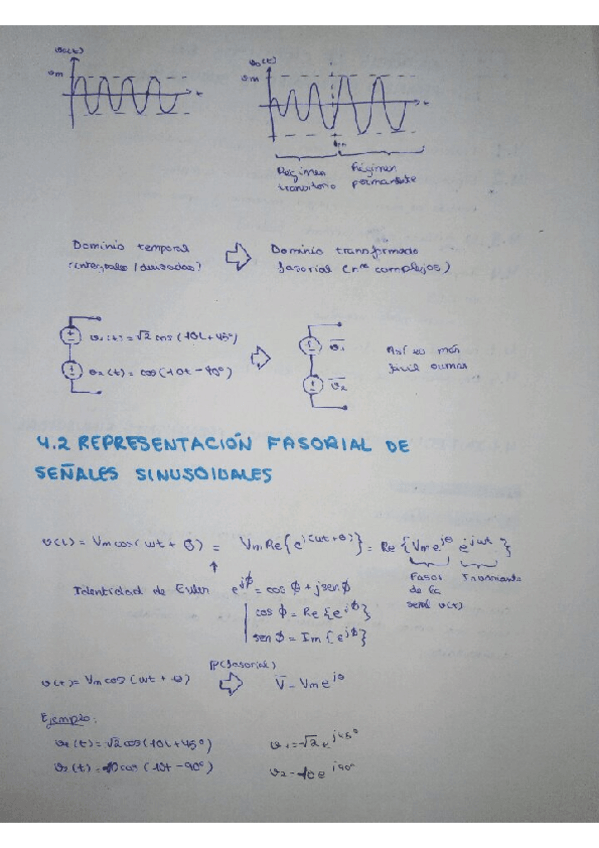 vc(t)
vm
t
vo(t)
vm
t
Régimen transitorio
Régimen permanente
Dominio temporal
(integrales / derivadas)
Dominio transformado
fasorial (nos complejos)
v1(t) = √2 cos (10t + 45°)
v2(t) = cos (10t - 90°)
V̄1
V̄2
Así es más
fácil sumar
4.2 REPRESENTACIÓN FASORIAL DE
SEÑALES SINUSOIDALES
v(t) = Vm cos (ωt + θ) = Vm Re{e^j(ωt+θ)} = Re {Vm e^jθ e^jωt}
Fasor
de la
señal v(t)
Identidad de Euler e^jϕ = cos ϕ + j sen ϕ
cos ϕ = Re {e^jϕ}
sen ϕ = Im {e^jϕ}
P(fasorial)
v(t) = Vm cos (ωt + θ) ⇨ V̄ = Vm e^jθ
Ejemplo:
v1(t) = √2 cos (10t + 45°) v1 = √2 e^j45°
v2(t) = 10 cos (10t - 90°) v2 = 10 e^j90°